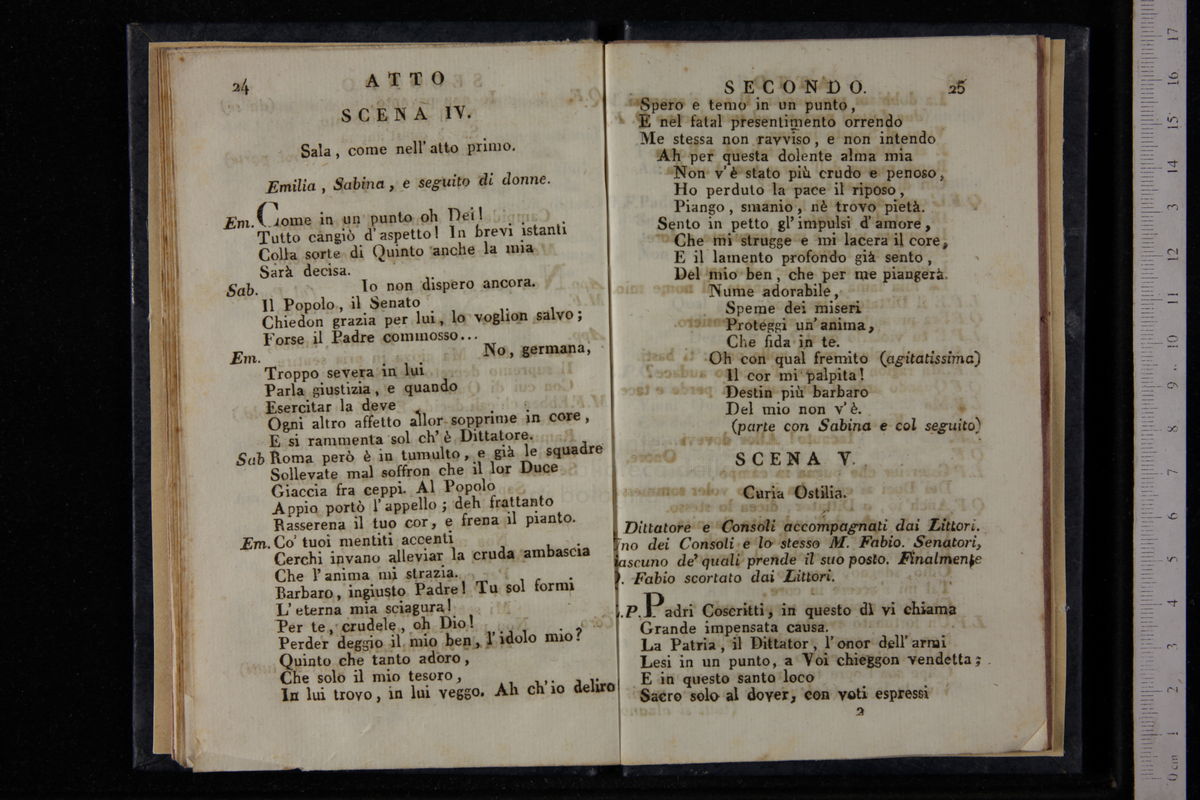 24
ATTO
SCENA IV.
Sala, come nell'atto primo.
Emilia, Sabina, e seguito di donne.
Em. Come in un punto oh Dei!
Tutto cangiò d'aspetto! In brevi istanti
Colla sorte di Quinto anche la mia
Sarà decisa.
Sab. Io non dispero ancora.
Il Popolo, il Senato
Chiedon grazia per lui, lo voglion salvo;
Forse il Padre commosso...
Em. No, germana,
Troppo severa in lui
Parla giustizia, e quando
Esercitar la deve
Ogni altro affetto allor sopprime in core,
E si rammenta sol ch'è Dittatore.
Sab Roma però è in tumulto, e già le squadre
Sollevate mal soffron che il lor Duce
Giaccia fra ceppi. Al Popolo
Appio portò l'appello; deh frattanto
Rasserena il tuo cor, e frena il pianto.
Em. Co' tuoi mentiti accenti
Cerchi invano alleviar la cruda ambascia
Che l'anima mi strazia.
Barbaro, ingiusto Padre! Tu sol formi
L'eterna mia sciagura!
Per te, crudele, oh Dio!
Perder deggio il mio ben, l'idolo mio?
Quinto che tanto adoro,
Che solo il mio tesoro,
In lui trovo, in lui veggo. Ah ch'io deliro
SECONDO. 25
Spero e temo in un punto,
E nel fatal presentimento orrendo
Me stessa non ravviso, e non intendo
Ah per questa dolente alma mia
Non v'è stato più crudo e penoso,
Ho perduto la pace il riposo,
Piango, smanio, nè trovo pietà.
Sento in petto gl'impulsi d'amore,
Che mi strugge e mi lacera il core,
E il lamento profondo già sento,
Del mio ben, che per me piangerà.
Nume adorabile,
Speme dei miseri
Proteggi un'anima,
Che fida in te.
Oh con qual fremito (agitatissima)
Il cor mi palpita!
Destin più barbaro
Del mio non v'è.
(parte con Sabina e col seguito)
SCENA V.
Curia Ostilia.
Dittatore e Consoli accompagnati dai Littori.
Uno dei Consoli e lo stesso M. Fabio. Senatori,
iascuno de' quali prende il suo posto. Finalmente
. Fabio scortato dai Littori.
.P. Padri Coscritti, in questo dì vi chiama
Grande impensata causa.
La Patria, il Dittator, l'onor dell'armi
Lesi in un punto, a Voi chieggon vendetta;
E in questo santo loco
Sacro solo al dover, con voti espressi
2